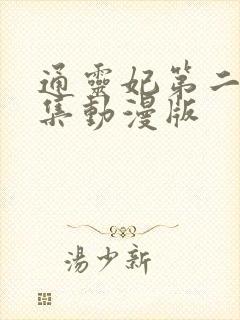 通靈妃第二
集動漫版
湯少新